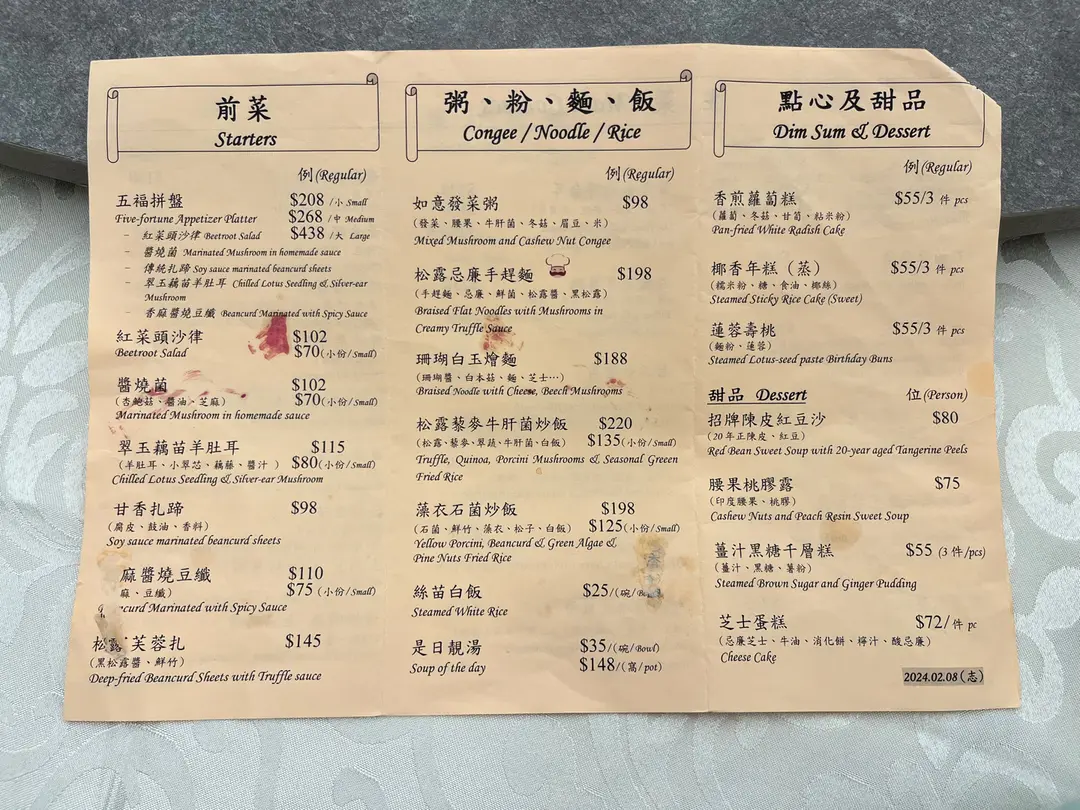 前菜
Starters
例 (Regular)
五福拼盤 $208 /小 Small
Five-fortune Appetizer Platter $268 /中 Medium
- 紅菜頭沙律 Beetroot Salad $438 /大 Large
- 醬燒菌 Marinated Mushroom in homemade sauce
- 傳統扎蹄 Soy sauce marinated beancurd sheets
- 翠玉藕苗羊肚耳 Chilled Lotus Seedling & Silver-ear
Mushroom
- 香麻醬燒豆纖 Beancurd Marinated with Spicy Sauce
紅菜頭沙律 $102
Beetroot Salad $70(小份/Small)
醬燒菌 $102
(杏鮑菇、醬油、芝麻) $70(小份/Small)
Marinated Mushroom in homemade sauce
翠玉藕苗羊肚耳 $115
(羊肚耳、小翠芯、藕藤、醬汁) $80(小份/Small)
Chilled Lotus Seedling & Silver-ear Mushroom
甘香扎蹄 $98
(腐皮、鼓油、香料)
Soy sauce marinated beancurd sheets
麻醬燒豆纖 $110
麻、豆纖) $75 (小份/Small)
curd Marinated with Spicy Sauce
松露芙蓉扎 $145
(黑松露醬、鮮竹)
Deep-fried Beancurd Sheets with Truffle sauce
粥、粉、麵、飯
Congee / Noodle / Rice
例 (Regular)
如意發菜粥 $98
(發菜、腰果、牛肝菌、冬菇、眉豆、米)
Mixed Mushroom and Cashew Nut Congee
松露忌廉手趕麵 $198
(手趕麵、忌廉、鮮菌、松露醬、黑松露)
Braised Flat Noodles with Mushrooms in
Creamy Truffle Sauce
珊瑚白玉燴麵 $188
(珊瑚醬、白本菇、麵、芝士…)
Braised Noodle with Cheese, Beech Mushrooms
松露藜麥牛肝菌炒飯 $220
(松露、藜麥、翠蔬、牛肝菌、白飯) $135(小份/Small)
Truffle, Quinoa, Porcini Mushrooms & Seasonal Greeen
Fried Rice
藻衣石菌炒飯 $198
(石菌、鮮竹、藻衣、松子、白飯) $125(小份/Small)
Yellow Porcini, Beancurd & Green Algae &
Pine Nuts Fried Rice
絲苗白飯 $25/(碗/
Steamed White Rice
是日靚湯 $35/(碗/Bowl)
Soup of the day $148/(窩/pot)
點心及甜品
Dim Sum & Dessert
例 (Regular)
香煎蘿蔔糕 $55/3 件 pcs
(蘿蔔、冬菇、甘筍、粘米粉)
Pan-fried White Radish Cake
椰香年糕(蒸) $55/3 件 pcs
(糯米粉、糖、食油、椰絲)
Steamed Sticky Rice Cake (Sweet)
蓮蓉壽桃 $55/3 件 pcs
(麵粉、蓮蓉)
Steamed Lotus-seed paste Birthday Buns
甜品 Dessert 位(Person)
招牌陳皮紅豆沙 $80
(20 年正陳皮、紅豆)
Red Bean Sweet Soup with 20-year aged Tangerine Peels
腰果桃膠露 $75
(印度腰果、桃膠)
Cashew Nuts and Peach Resin Sweet Soup
薑汁黑糖千層糕 $55 (3 件/pcs)
(薑汁、黑糖、薯粉)
Steamed Brown Sugar and Ginger Pudding
芝士蛋糕 $72/ 件 pc
(忌廉芝士、牛油、消化餅、檸汁、酸忌廉)
Cheese Cake
2024.02.08(志)